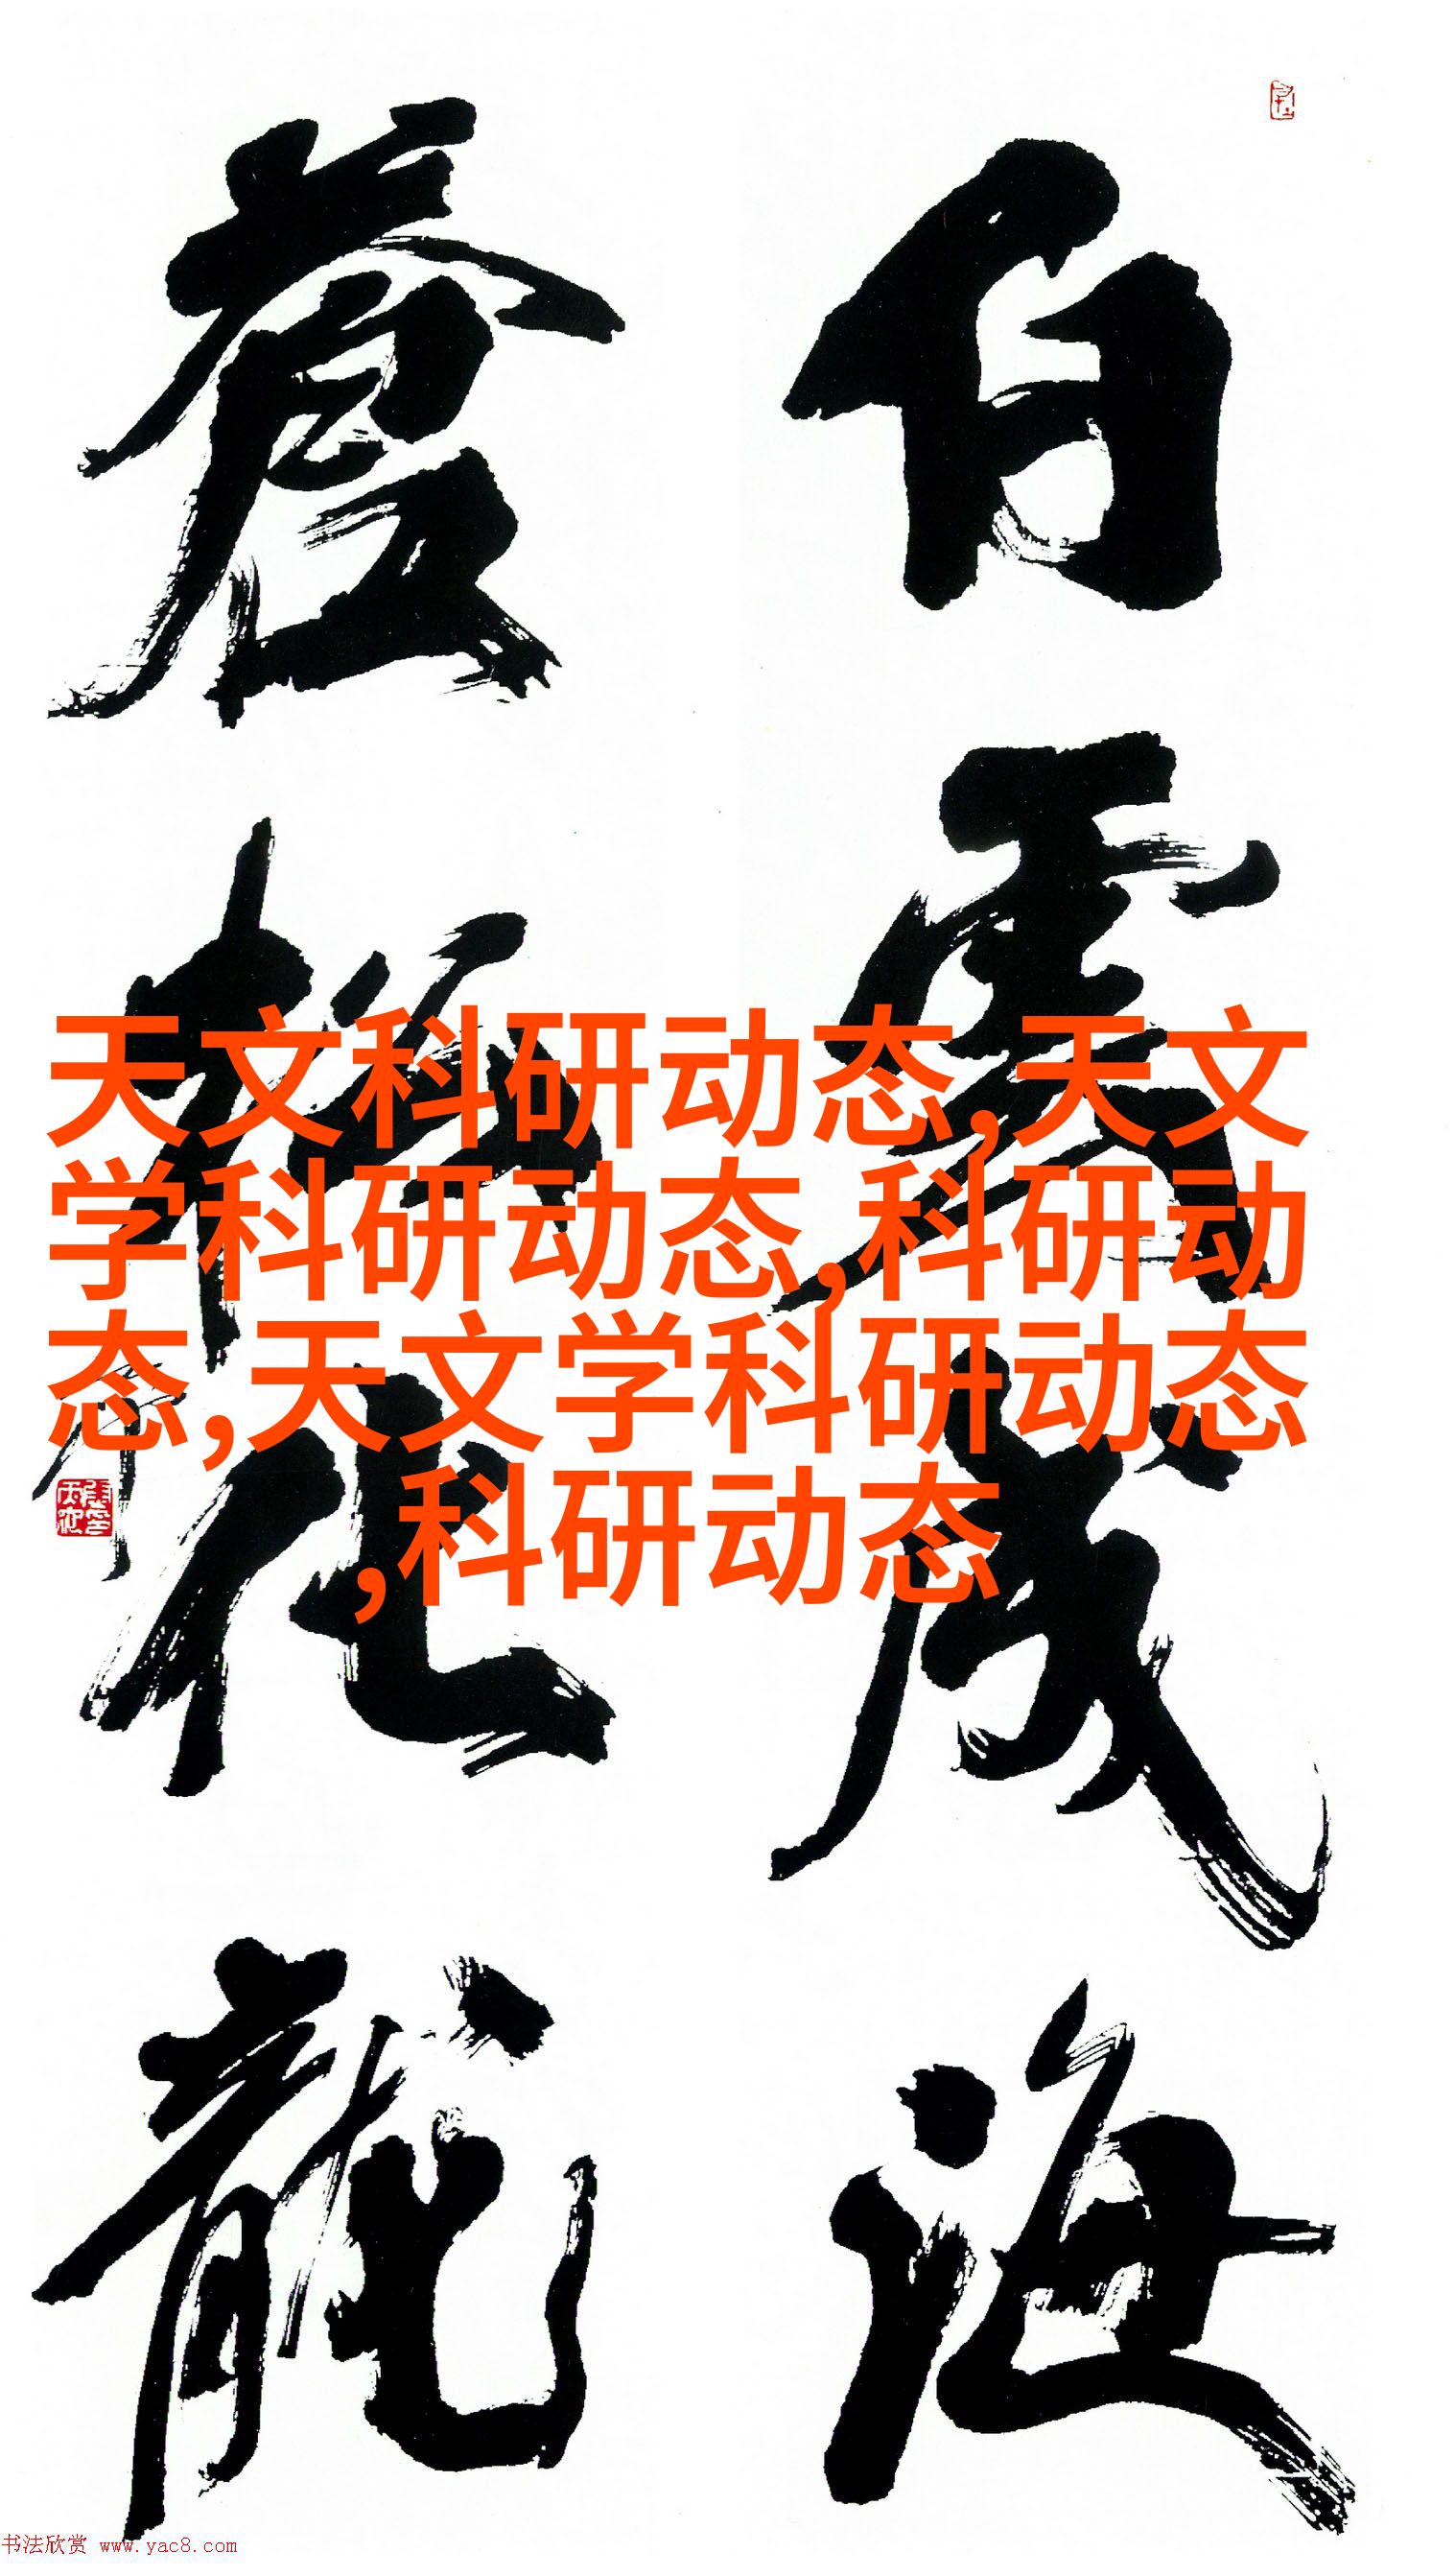 白雲成海
蒼松化龍
天文科研动态,天文
学科研动态,科研动
态,天文学科研动态
,科研动态
书法欣赏 www.yac8.com